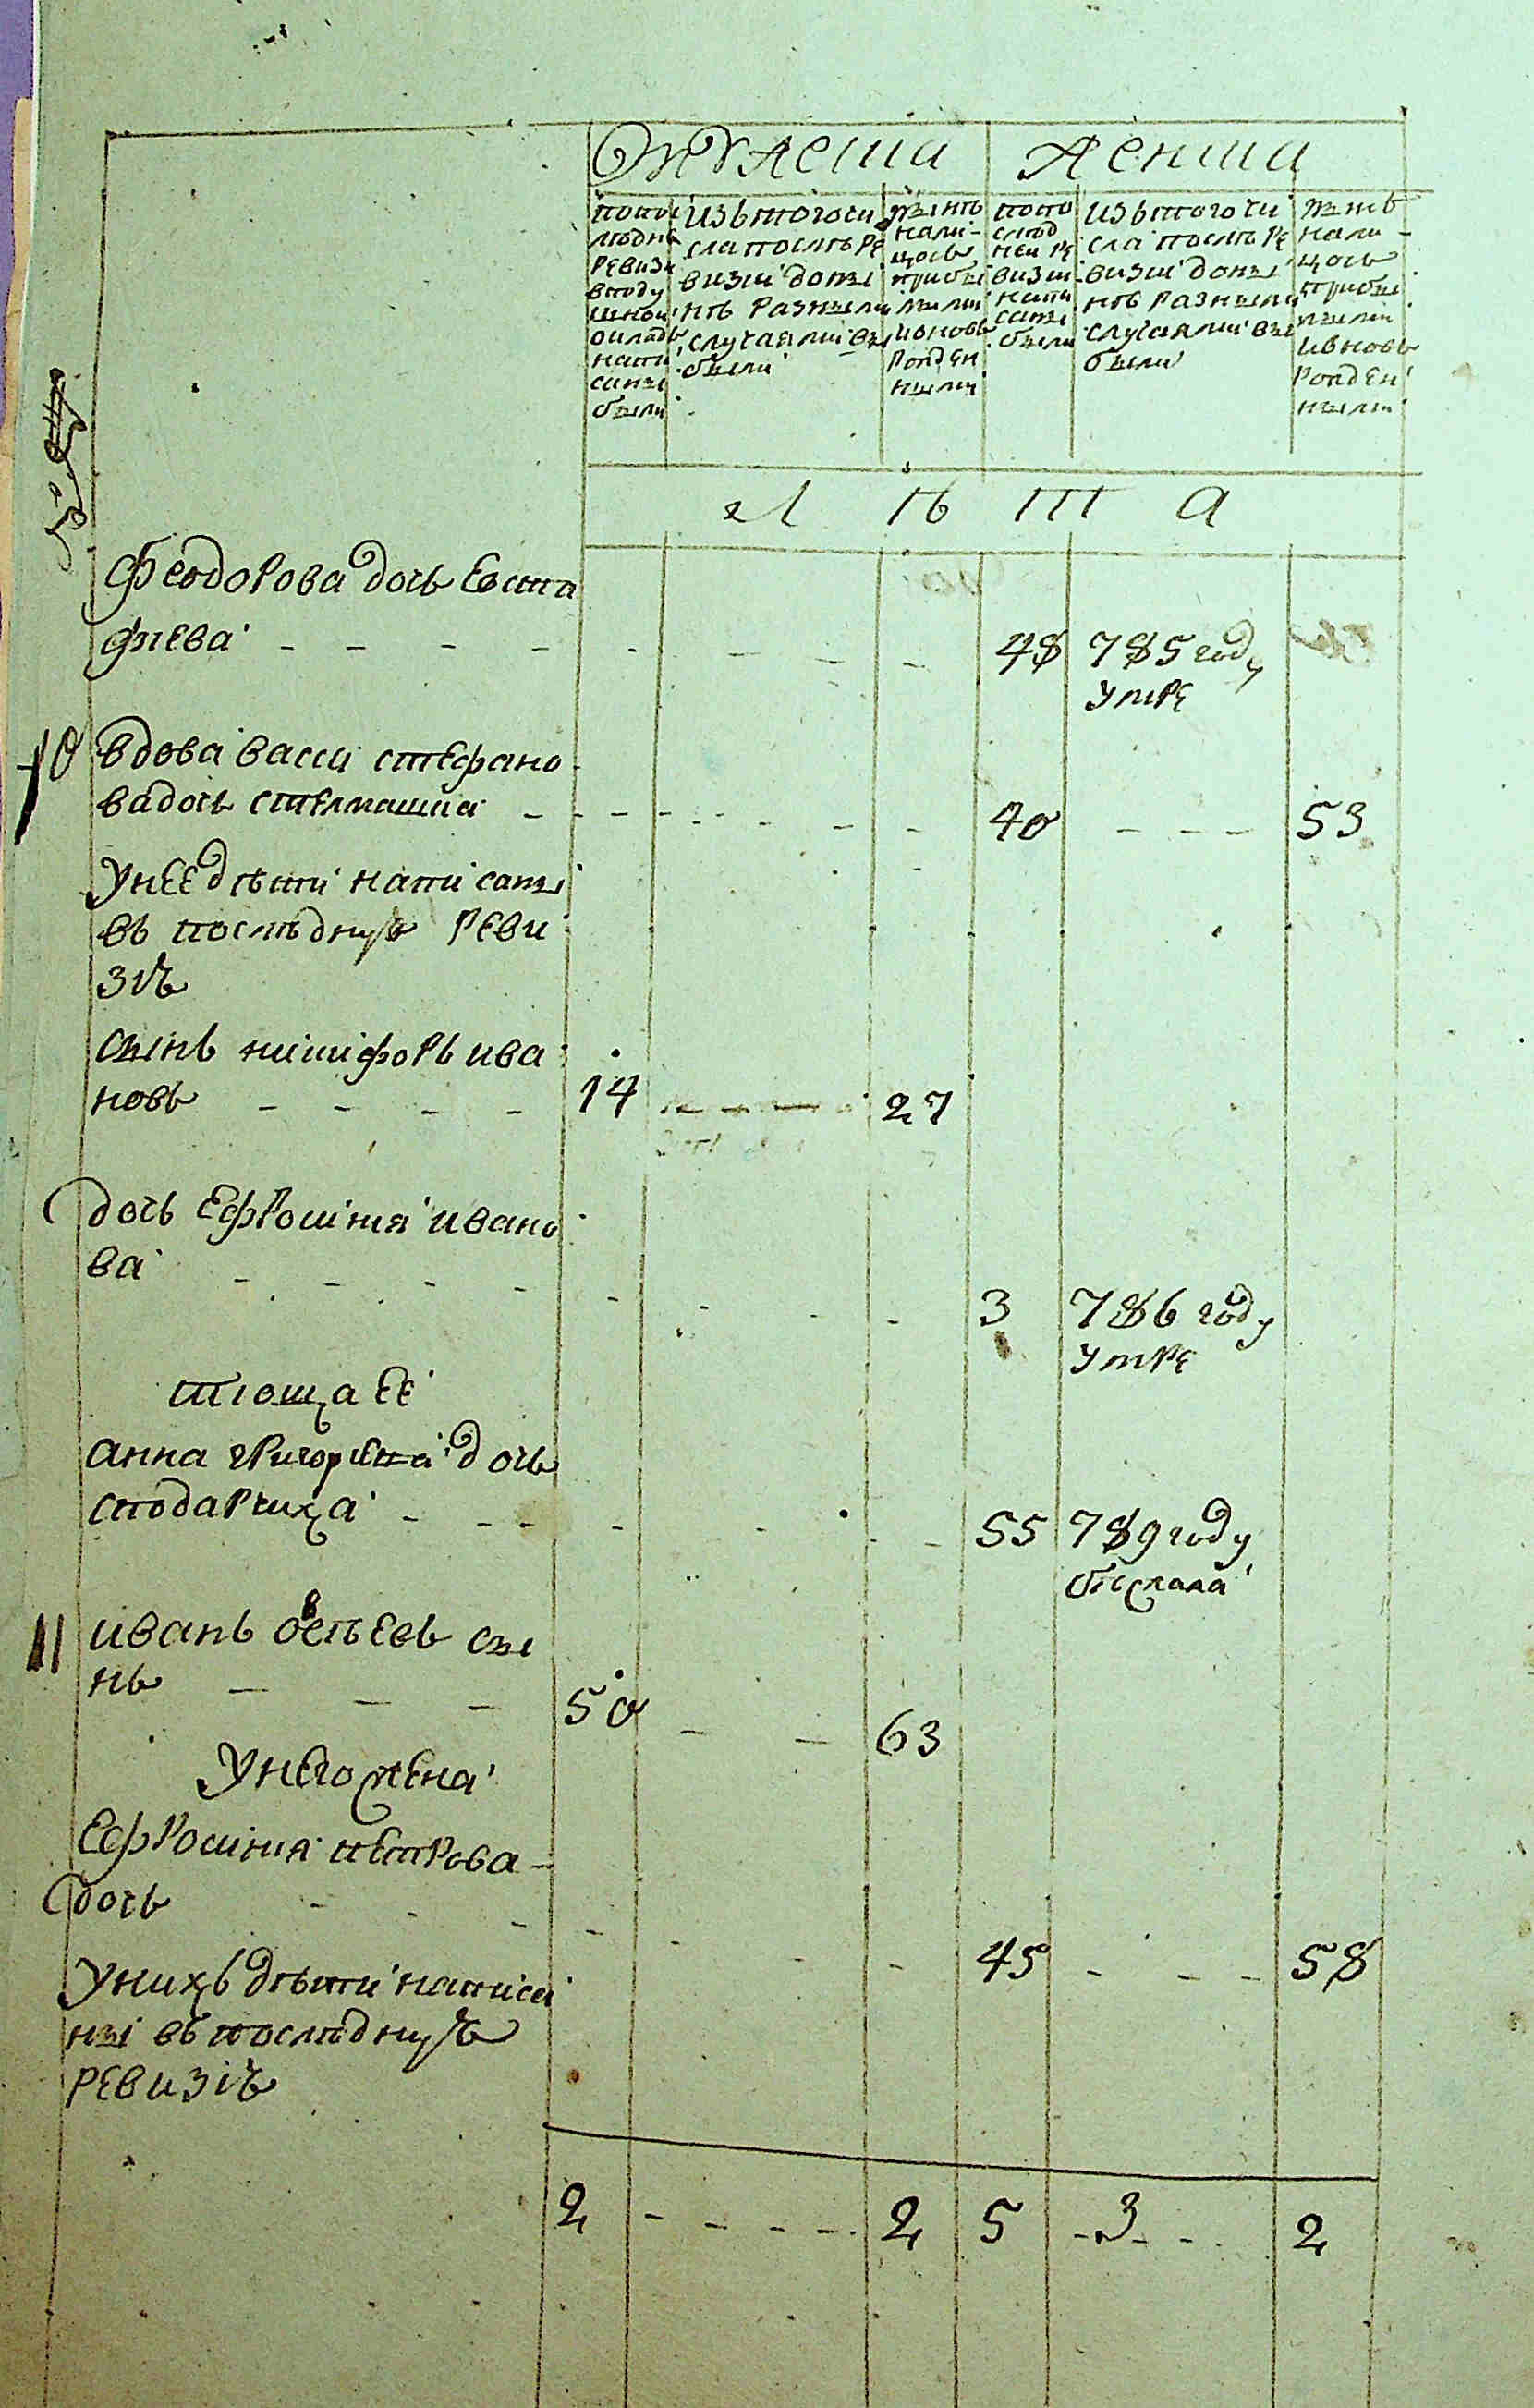 Мужеска Женска
попос
лѣдне
ревизи
вподу
шной
окладъ
напи
саны
были
изътогочи
сла послѣ ре
визіи доны
нѣ разными
случаями вы
были
нынѣ
нали-
цось
прибы
лыми
ивновь
рожден
ными
попо
слѣд
неи ре
визіи
напи
саны
были
изътого чи
сла послѣ ре
визіи доны
нѣ разными
случаями вы
были
нынѣ
нали-
цось
прибы
лыми
ивновь
рожден
ными
л ѣ т а
феодорова дочь Евста
фиева 48 785 году
умре
10 вдова васса стефано
ва дочь стелмашка 40 53
унее дѣти написаны
въ последную реви
зію
сынъ никифоръ ива
новъ 14 27
дочь Ефросиния ивано
ва 3 786 году
умре
тіоща ее
анна григориева дочь
сподариха 55 789 году
бѣжала
11 иванъ евсѣевъ сы
нъ 50 63
унего жена
Ефросиния петрова
дочь 45 58
унихъ дѣти написа
ны въ последную
ревизію
2 2 5 3 2